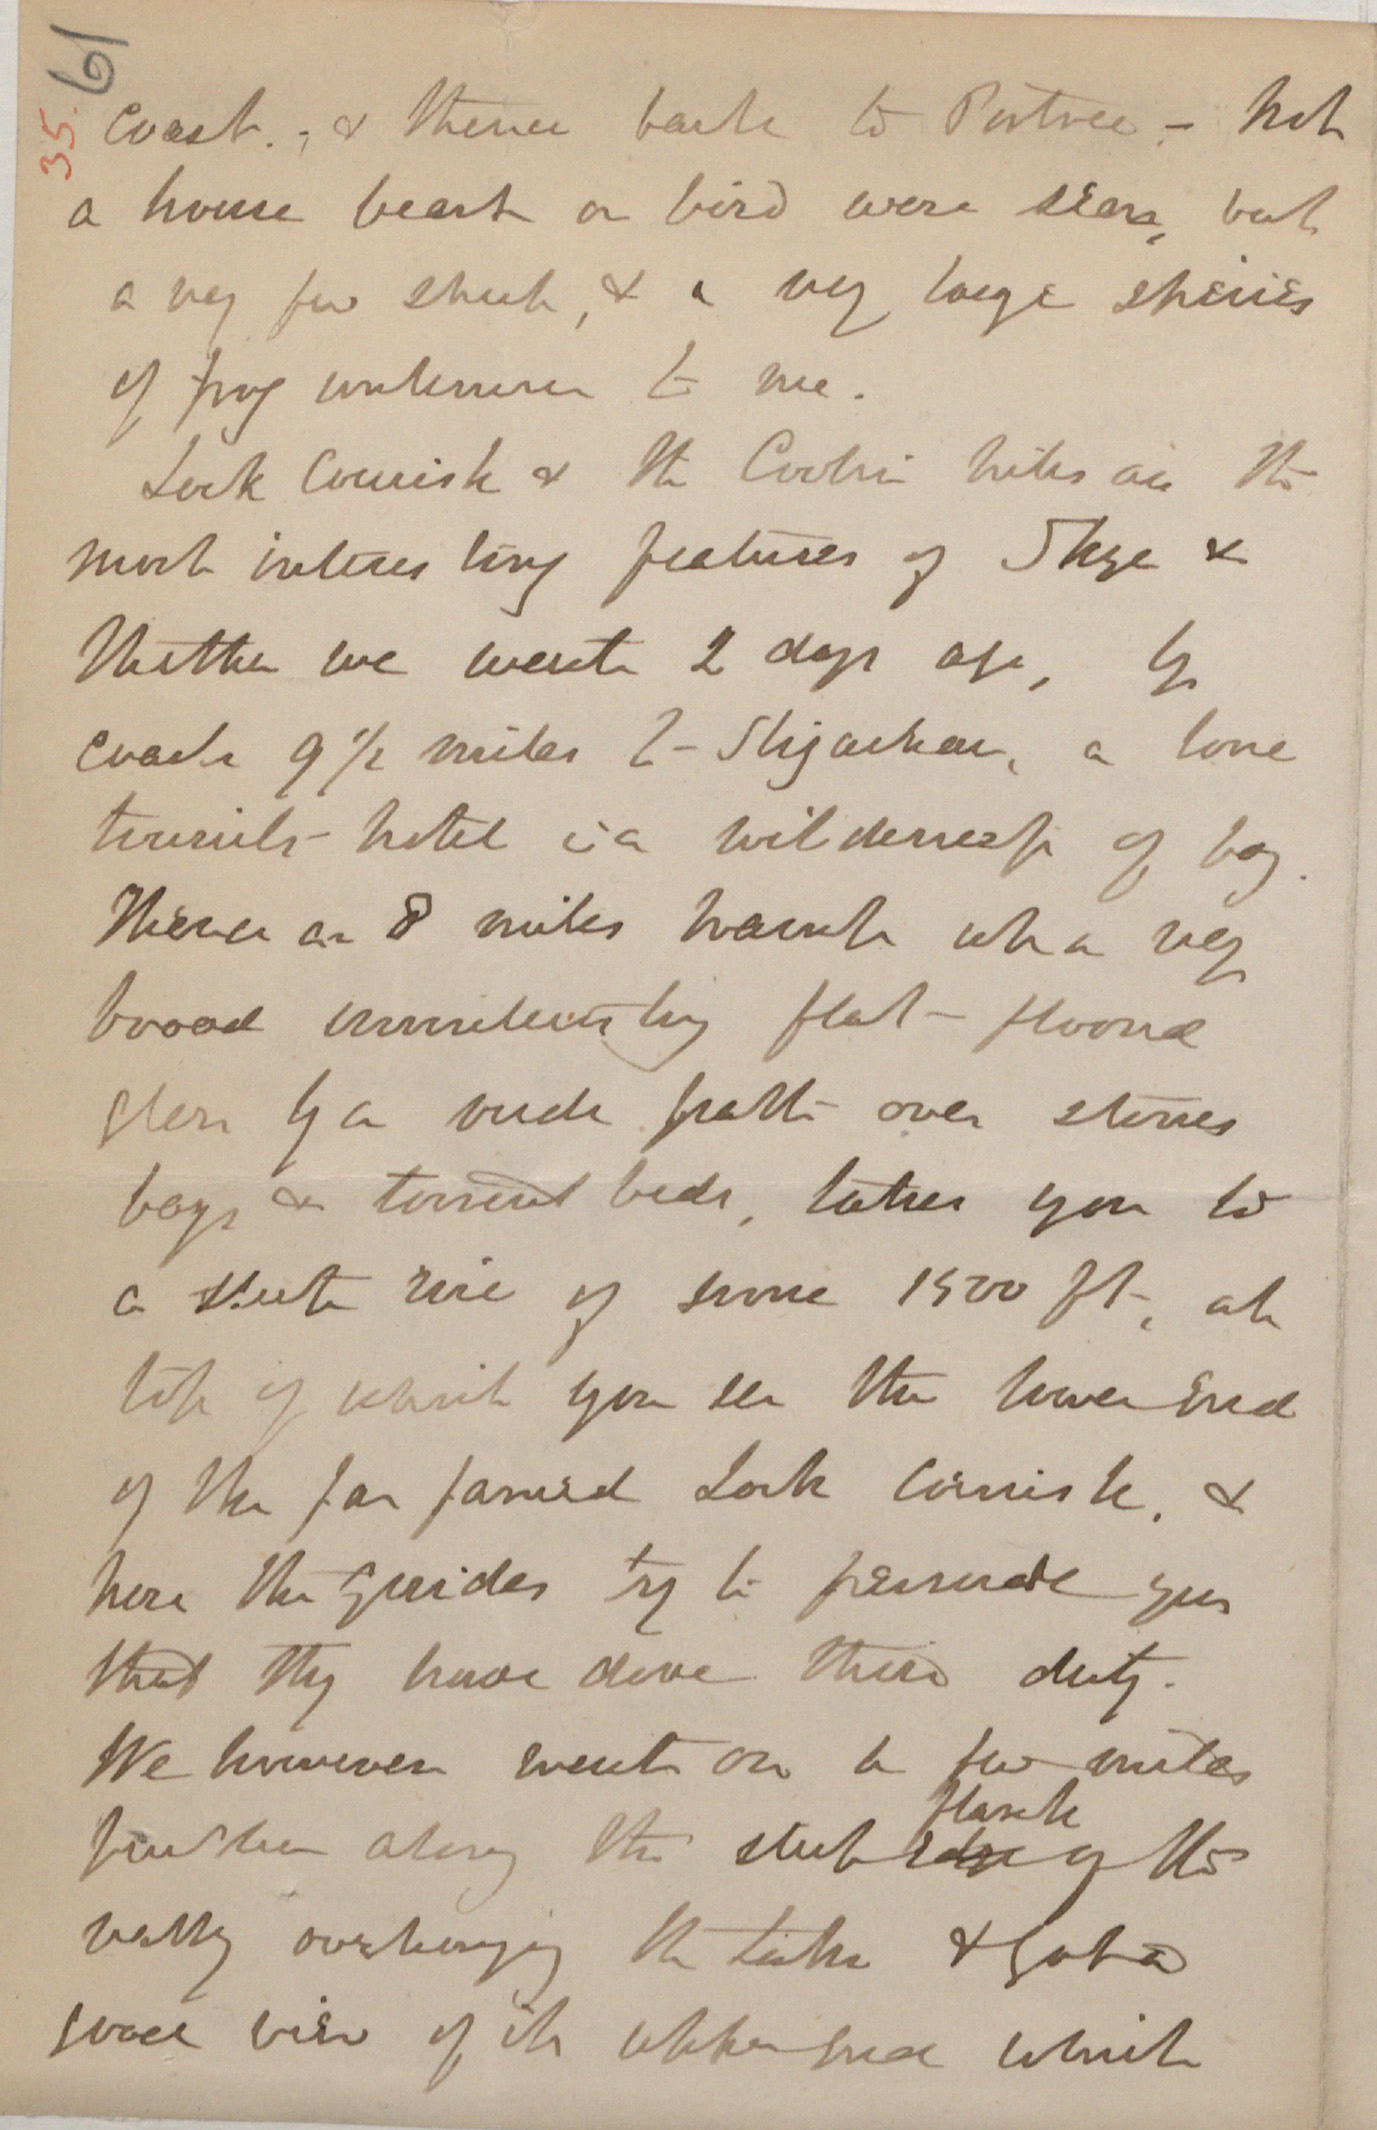 61
35.
coast., & thence back to Portree - Not
a house beast or bird were seen, but
a very few sheep, & a very large species
of frog unknown to me.
Loch Coruisk & the Coolin hills are the
most interesting features of Skye &
thither we went 2 days ago, by
coach 9 1/2 miles to Sligachan, a lone
tourists hotel in a wilderness of bog.
Thence an 8 miles march up a very
broad uninteresting flat-floored
glen by a rude path over stones
bogs & torrent beds, takes you to
a steep rise of some 1500 ft, at
top of which you see the lower end
of the far famed Loch Coruisk, &
here the guides try to persuade you
that they have done their duty.
We however went on a few miles
flank
further along the steep of the
valley overhanging the Lake & got a
good view of its upper end which